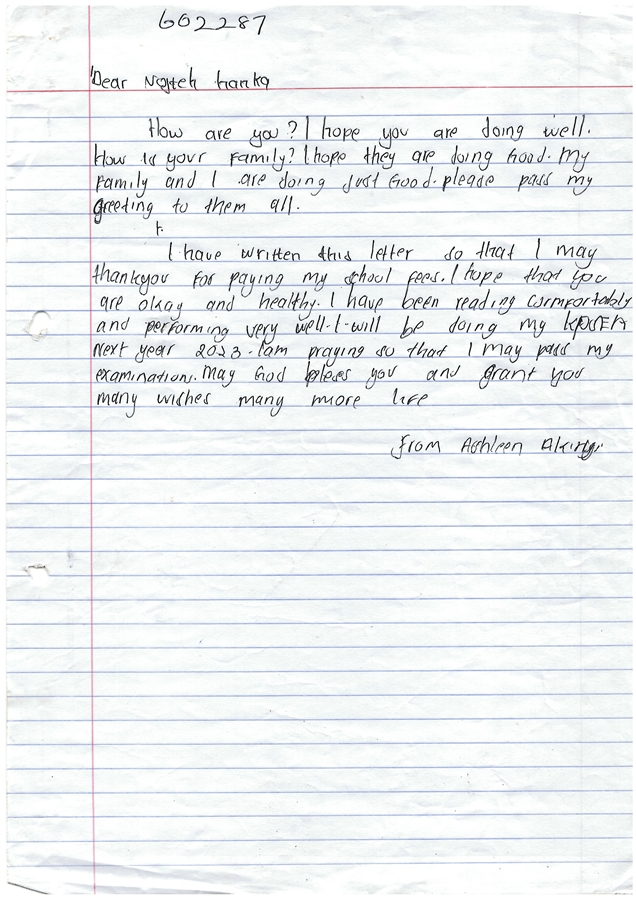 602287
Dear Hanka
How are you? I hope you are doing well.
How is your Family? I hope they are doing Good. My
Family and I are doing Just Good. please pass my
greeting to them all.
I have written this letter so that I may
thankyou for paying my school fees. I hope that you
are okay and healthy. I have been reading cormfortably
and performing very well. I will be doing my
Next year 2023. Iam praying so that I may pass my
examination. May God you and grant you
many wishes many more life
From Ashleen